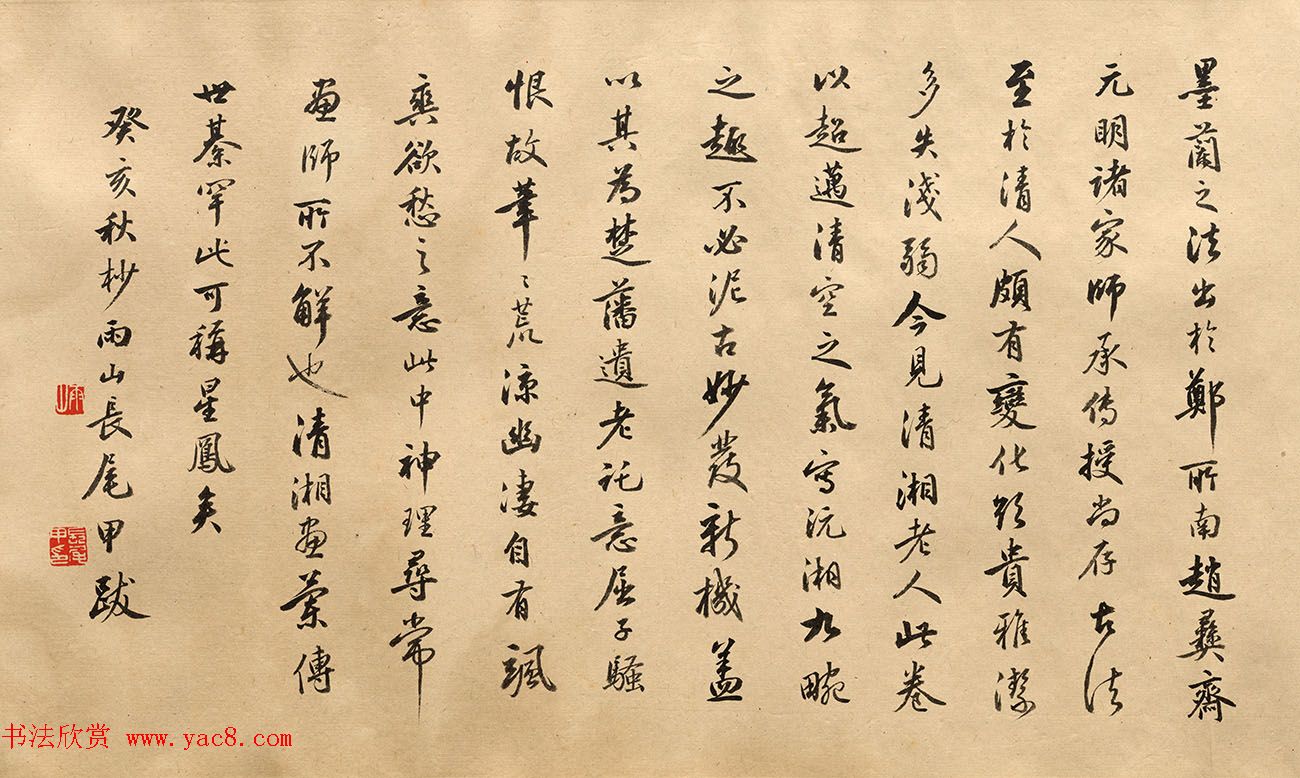 墨蘭之法出於鄭所南趙彝齋
元明諸家師承傳授尚存古法
至於清人頗有變化雖貴雅潔
多失淺弱今見清湘老人此卷
以超邁清空之氣寫沅湘九畹
之趣不必泥古妙發新機蓋
以其為楚藩遺老託意屈子騷
恨故筆〻荒涼幽淒自有颯
爽欲愁之意此中神理尋常
畫師所不解也清湘畫蘭傳
世綦罕此可稱星鳳矣
癸亥秋杪雨山長尾甲跋
雨山
長尾甲印
书法欣赏 www.yac8.com